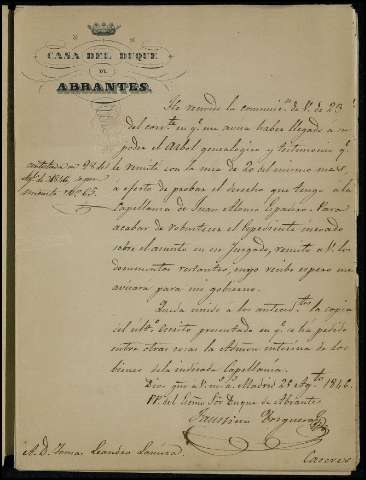 CASA DEL DUQUE
DE
ABRANTES.
He recivido la comunic.on de V. de 23
del corr.te en q.e me avisa haber llegado a su
poder el Arbol genealogico y testimonio q.e
le remiti con la mia de 20 del mismo mes,
a efecto de probar el derecho que tengo a la
Capellania de Juan Alonso Para
acabar de robustecer el Espediente incoado
sobre el asunto en ese Juzgado, remito a V. los
documentos restantes, cuyo recibo espero me
avisara para mi gobierno.
Queda unido a los anteced.tes la copia
del ult.o escrito presentado en q.e se ha pedido
entre otras cosas la Admon interina de los
bienes de la indicada Capellania.
Dios gue a V. m.s a.s Madrid 28 Ag.to 1846
PP. del Exmo Sor Duque de Abrantes
Faustino
A. D. Tomas Leandro
Caceres
contestada en 28 de